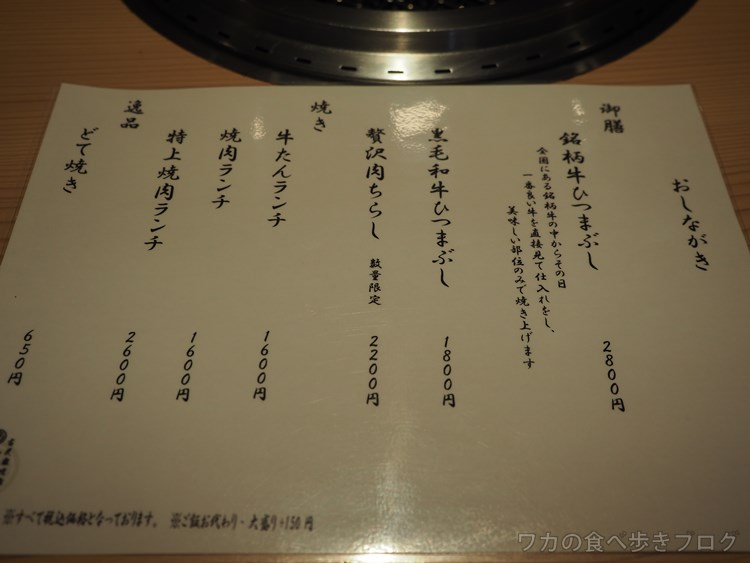 おしながき
御膳
銘柄牛ひつまぶし
2800円
全国にある銘柄牛の中からその日
一番良い牛を直接見て仕入れをし、
美味しい部位のみで焼き上げます
黒毛和牛ひつまぶし
1800円
贅沢肉ちらし 数量限定
2200円
焼き
牛たんランチ
1600円
焼肉ランチ
1600円
特上焼肉ランチ
2600円
逸品
どて焼き
650円
※すべて税込価格となっております。 ※ご飯お代わり・大盛り+150円
ワカの食べ歩きブログ